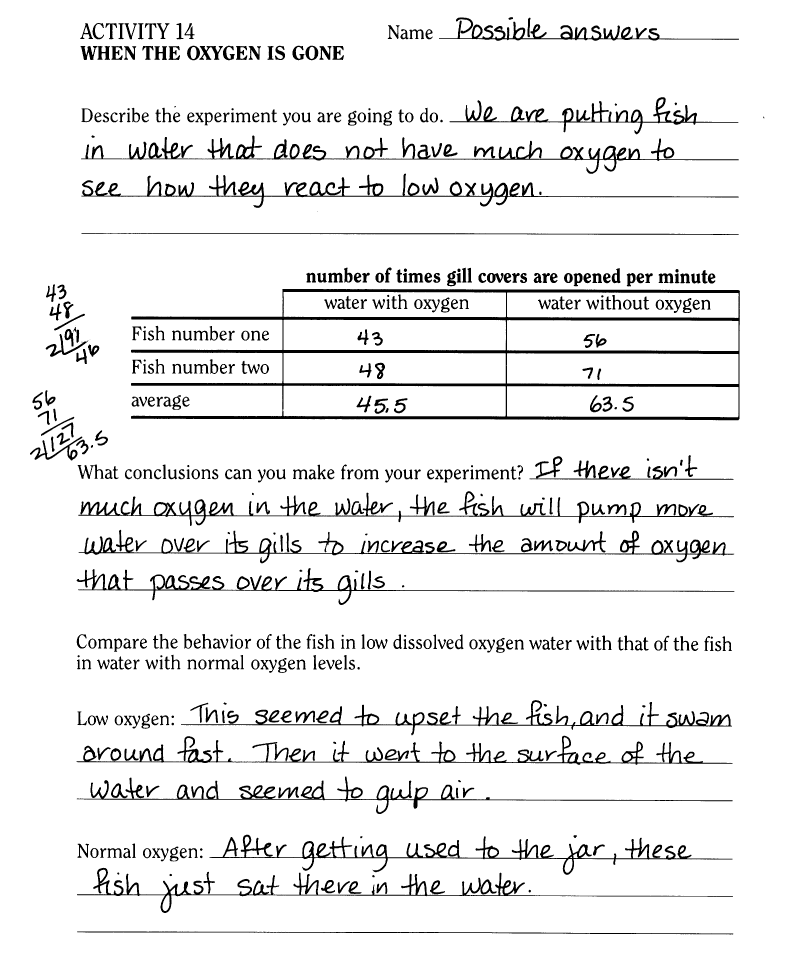 ACTIVITY 14 Name Possible answers
WHEN THE OXYGEN IS GONE
Describe the experiment you are going to do. We are putting fish
in water that does not have much oxygen to
see how they react to low oxygen.
number of times gill covers are opened per minute
water with oxygen water without oxygen
Fish number one 43 56
Fish number two 48 71
average 45.5 63.5
43
48
2 91
46
56
71
2 127
63.5
What conclusions can you make from your experiment? If there isn't
much oxygen in the water, the fish will pump more
water over its gills to increase the amount of oxygen
that passes over its gills.
Compare the behavior of the fish in low dissolved oxygen water with that of the fish
in water with normal oxygen levels.
Low oxygen: This seemed to upset the fish, and it swam
around fast. Then it went to the surface of the
water and seemed to gulp air.
Normal oxygen: After getting used to the jar, these
fish just sat there in the water.